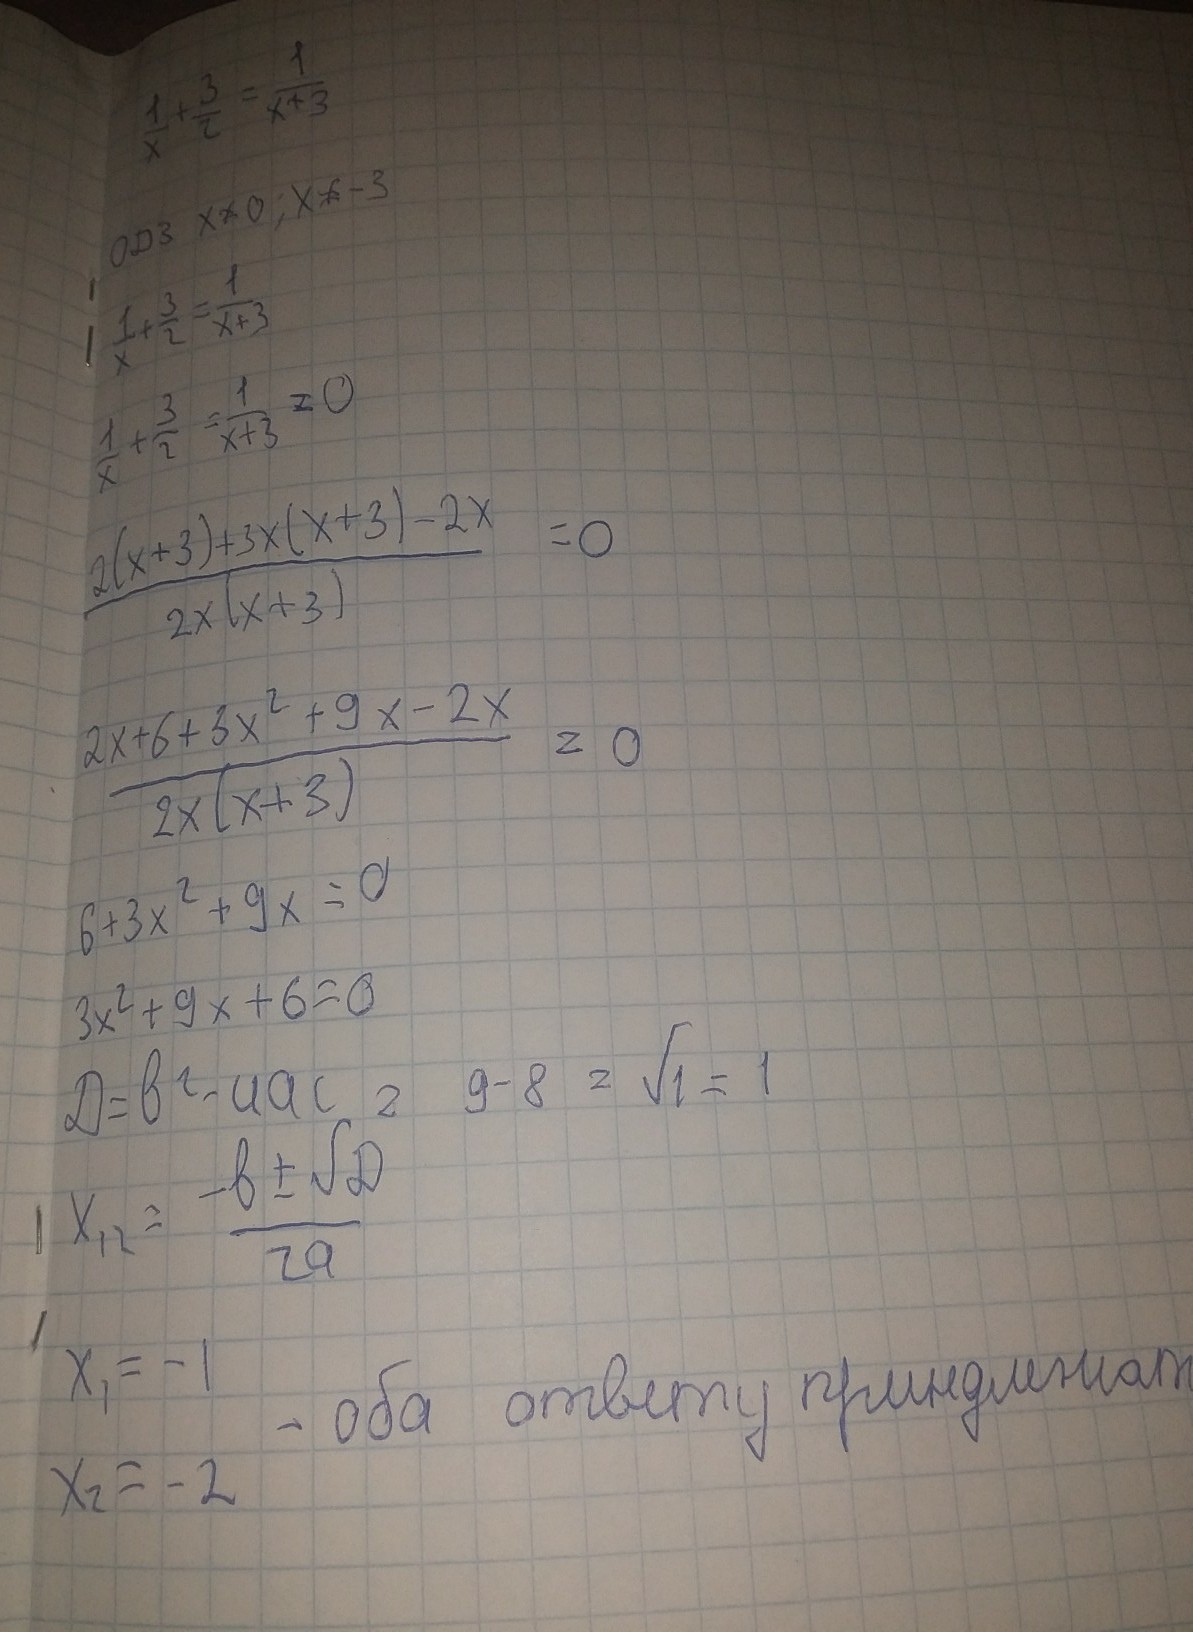 1/x + 3/2 = 1/(x+3)
ОДЗ x≠0; x≠-3
1/x + 3/2 = 1/(x+3)
1/x + 3/2 = 1/(x+3) = 0
(2(x+3)+3x(x+3)-2x)/(2x(x+3)) = 0
(2x+6+3x²+9x-2x)/(2x(x+3)) = 0
6+3x²+9x=0
3x²+9x+6=0
D=b²-4ac = 9-8 = √1 = 1
x₁,₂ = (-b±√D)/(2a)
x₁ = -1
- оба ответу
x₂ = -2